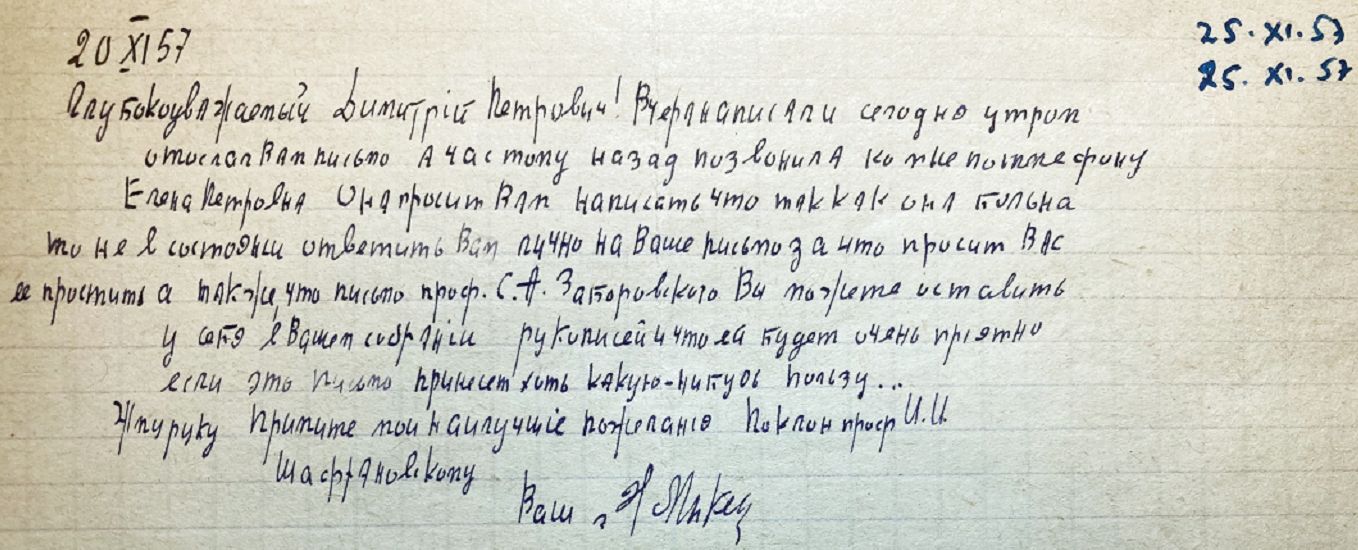 20 XI 57
25. XI. 57
25. XI. 57
Глубокоуважаемый Димитрій Петрович! Вчера написал и сегодня утром
отослал Вам письмо а час тому назад позвонила ко мне по телефону
Елена Петровна Она просит Вам написать что так как она больна
то не в состояньи ответить Вам лично на Ваше письмо за что просит Вас
ее простить а также, что письмо проф. С. А. Заборовского Вы можете оставить
у себя в Вашем собраніи рукописей и что ей будет очень пріятно
если это письмо принесет хоть какую-нибудь пользу...
Жму руку Примите мои наилучшіе пожеланія Поклон проф И. И.
Шафрановскому
Ваш